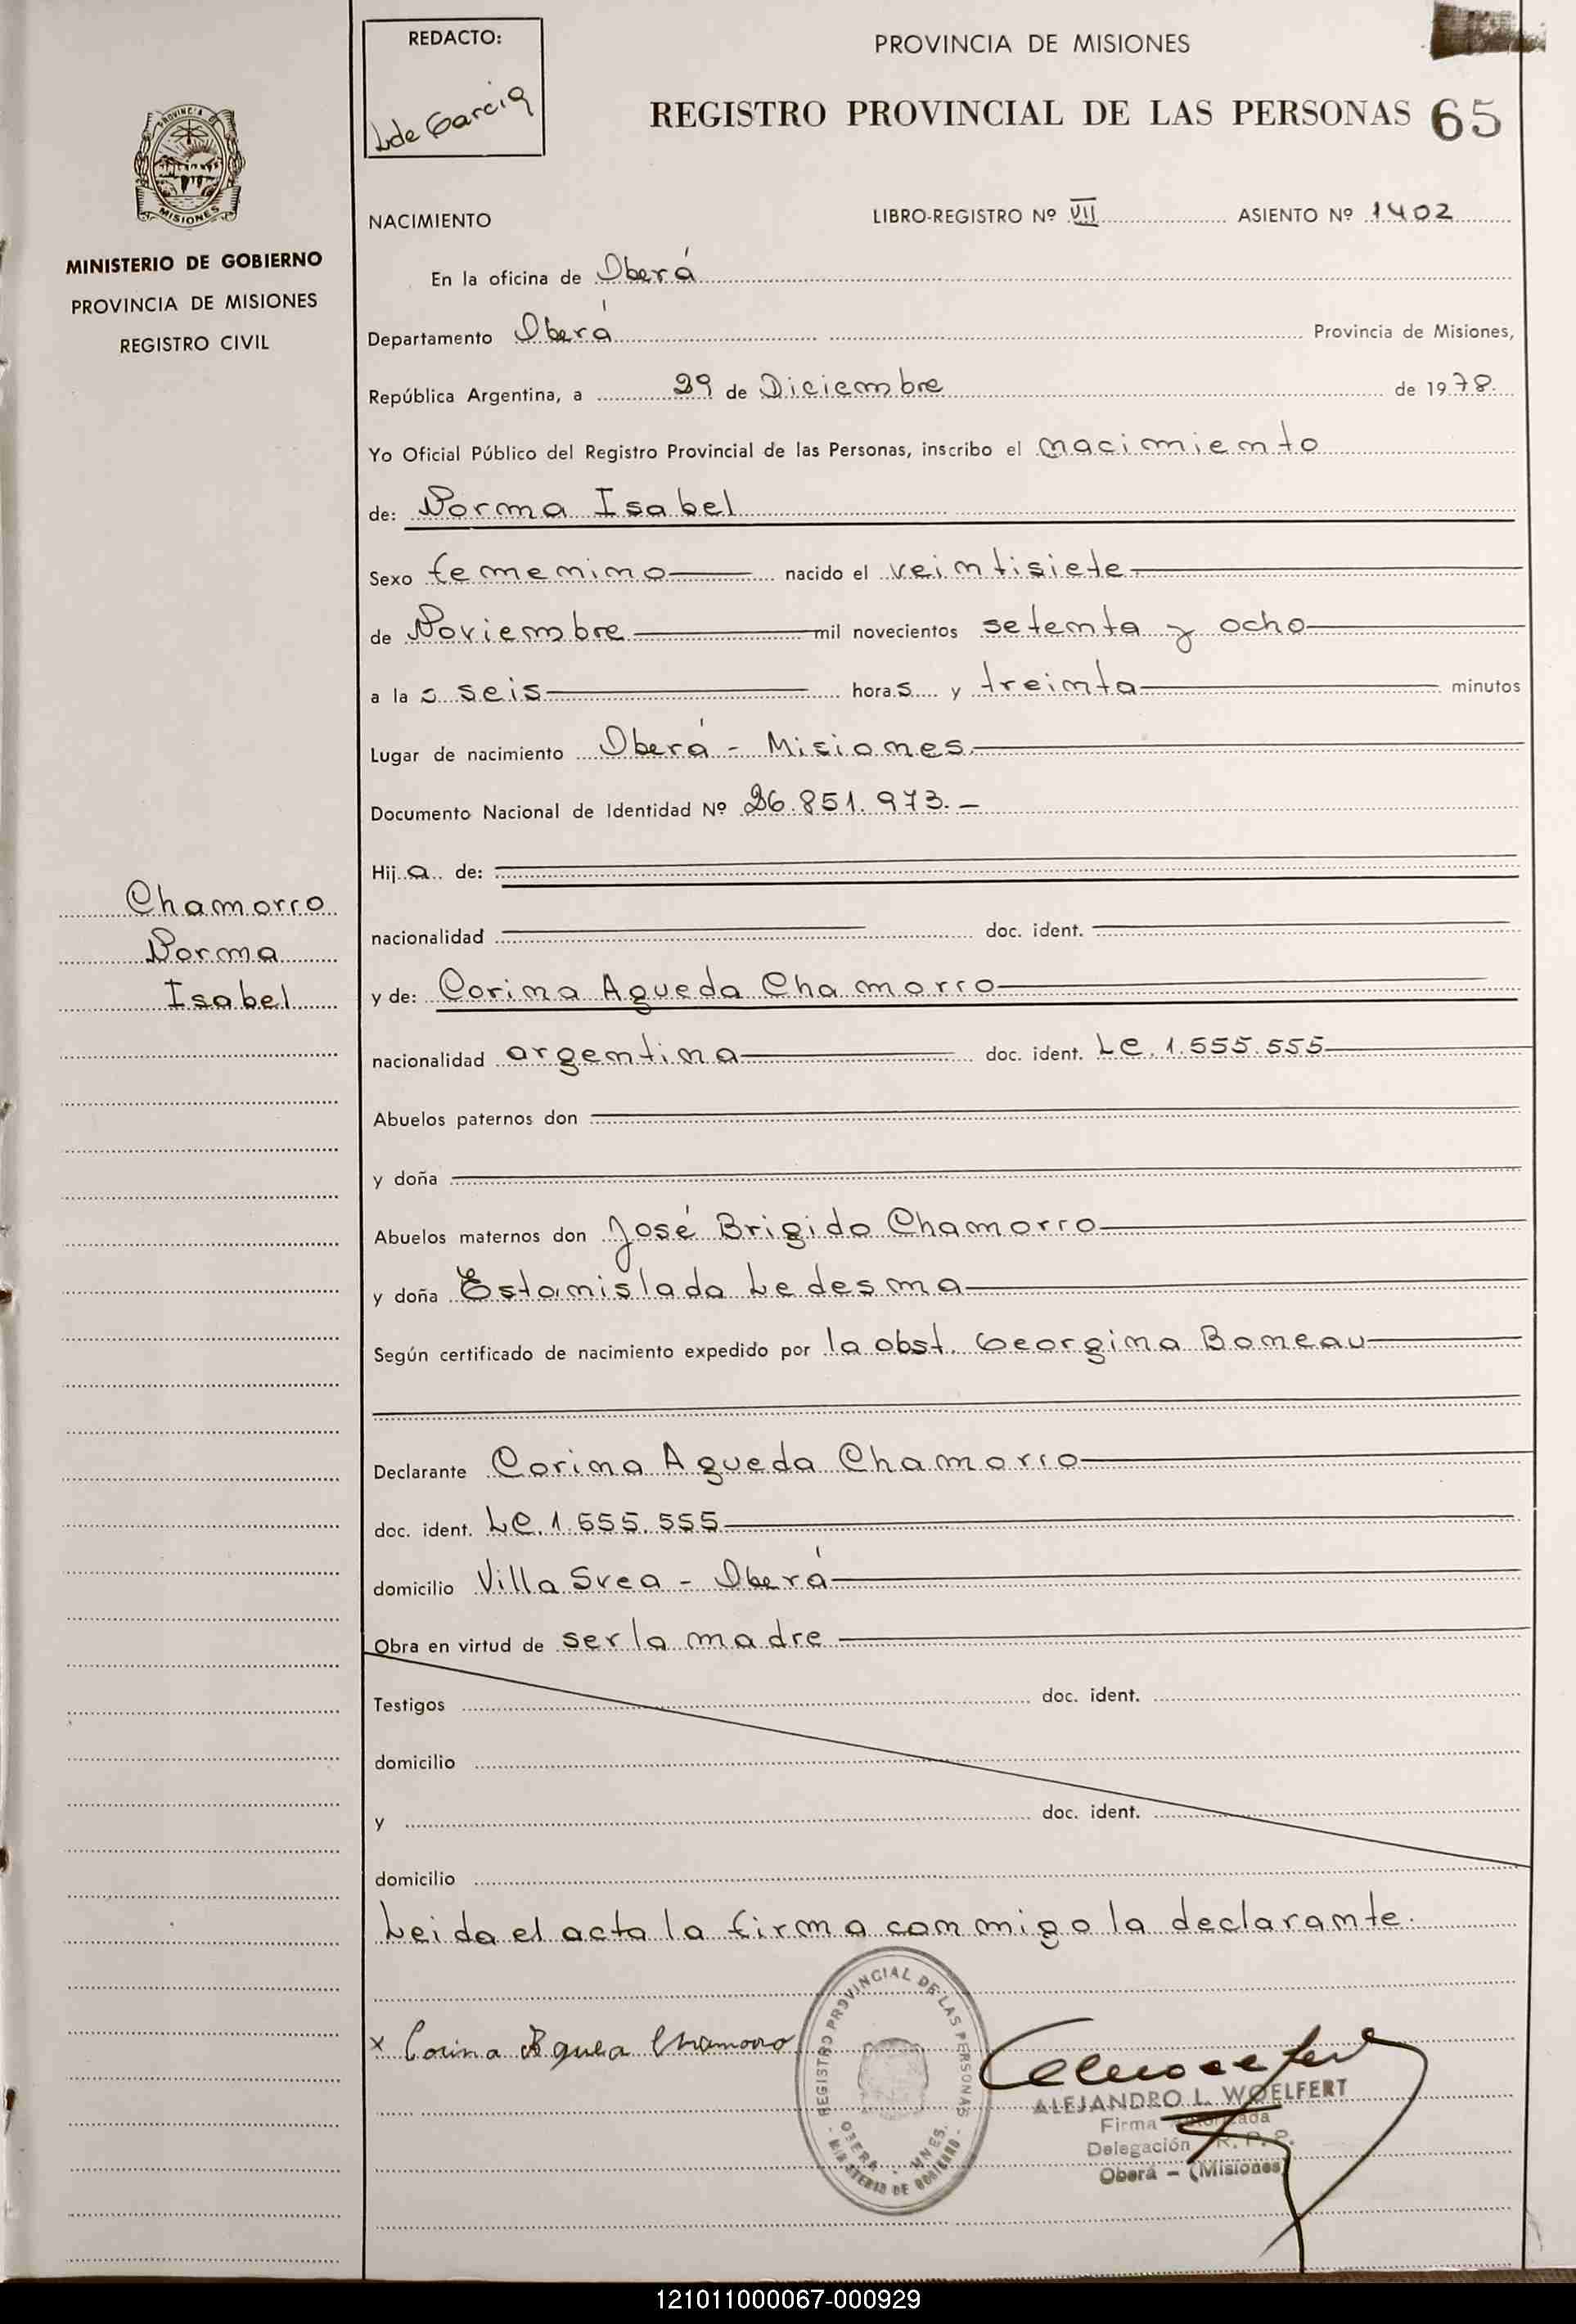 REDACTO:
L de Garcia
PROVINCIA DE MISIONES
REGISTRO PROVINCIAL DE LAS PERSONAS 65
PROVINCIA DE
MISIONES
MINISTERIO DE GOBIERNO
PROVINCIA DE MISIONES
REGISTRO CIVIL
NACIMIENTO LIBRO-REGISTRO Nº VII ASIENTO Nº 1402
En la oficina de Oberá
Departamento Oberá Provincia de Misiones,
República Argentina, a 29 de Diciembre de 1978.
Yo Oficial Público del Registro Provincial de las Personas, inscribo el nacimiento
de: Norma Isabel
Sexo femenino nacido el veintisiete
de Noviembre mil novecientos setenta y ocho
a la s seis horas y treinta minutos
Lugar de nacimiento Oberá - Misiones
Documento Nacional de Identidad Nº 26.851.973.-
Hija de:
nacionalidad doc. ident.
Chamorro
Norma
Isabel
y de: Corina Agueda Chamorro
nacionalidad argentina doc. ident. LC. 1.555.555
Abuelos paternos don
y doña
Abuelos maternos don José Brigido Chamorro
y doña Estanislada Ledesma
Según certificado de nacimiento expedido por la obst. Georgina Boneau
Declarante Corina Agueda Chamorro
doc. ident. LC. 1.555.555
domicilio Villa Svea - Oberá
Obra en virtud de ser la madre
Testigos doc. ident.
domicilio
y doc. ident.
domicilio
Leida el acta la firma conmigo la declarante.
x Corina Aguea Chamorro
REGISTRO PROVINCIAL DE LAS PERSONAS
OBERA - MNES.
- MINISTERIO DE GOBIERNO -
ALEJANDRO L. WOELFERT
Firma Autorizada
Delegación R. P. P.
Oberá - (Misiones)
121011000067-000929